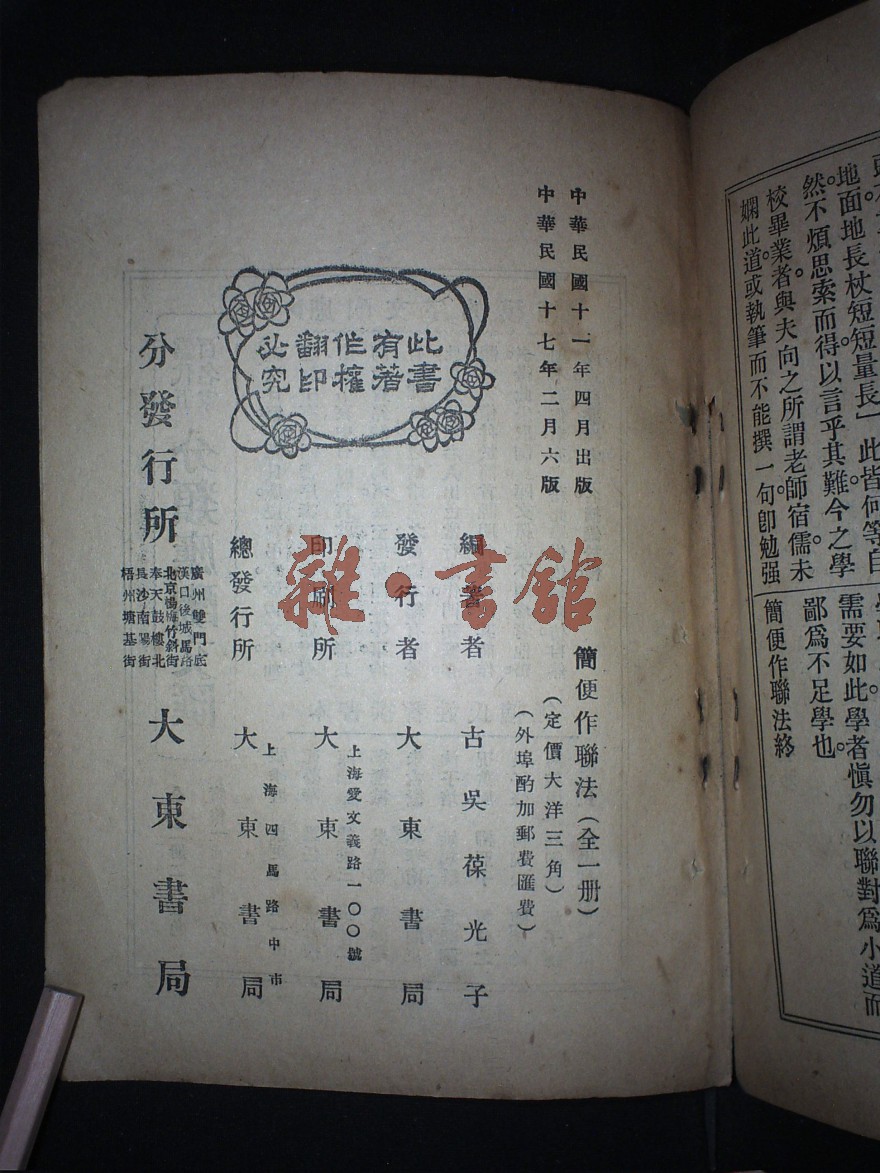 地面地長杖短短量長」此皆何等自
然不煩思索而得以言乎其難今之學
校畢業者與夫向之所謂老師宿儒未
嫻此道。或執筆而不能撰一句卽勉强
需要如此學者愼勿以聯對爲小道而
鄙爲不足學也。
簡便作聯法終
中華民國十一年四月出版
中華民國十七年二月六版
此書
有著
作權
翻印
必究
簡便作聯法(全一册)
(定價大洋三角)
(外埠酌加郵費匯費)
編著者 古吳葆光子
發行者 大東書局
印刷所 上海愛文義路一〇〇號 大東書局
總發行所 上海四馬路中市 大東書局
分發行所
廣州雙門底
漢口後城馬路
北京楊梅竹斜街
奉天鼓樓北
長沙南陽街
梧州塘基街
大東書局
雜·書舘